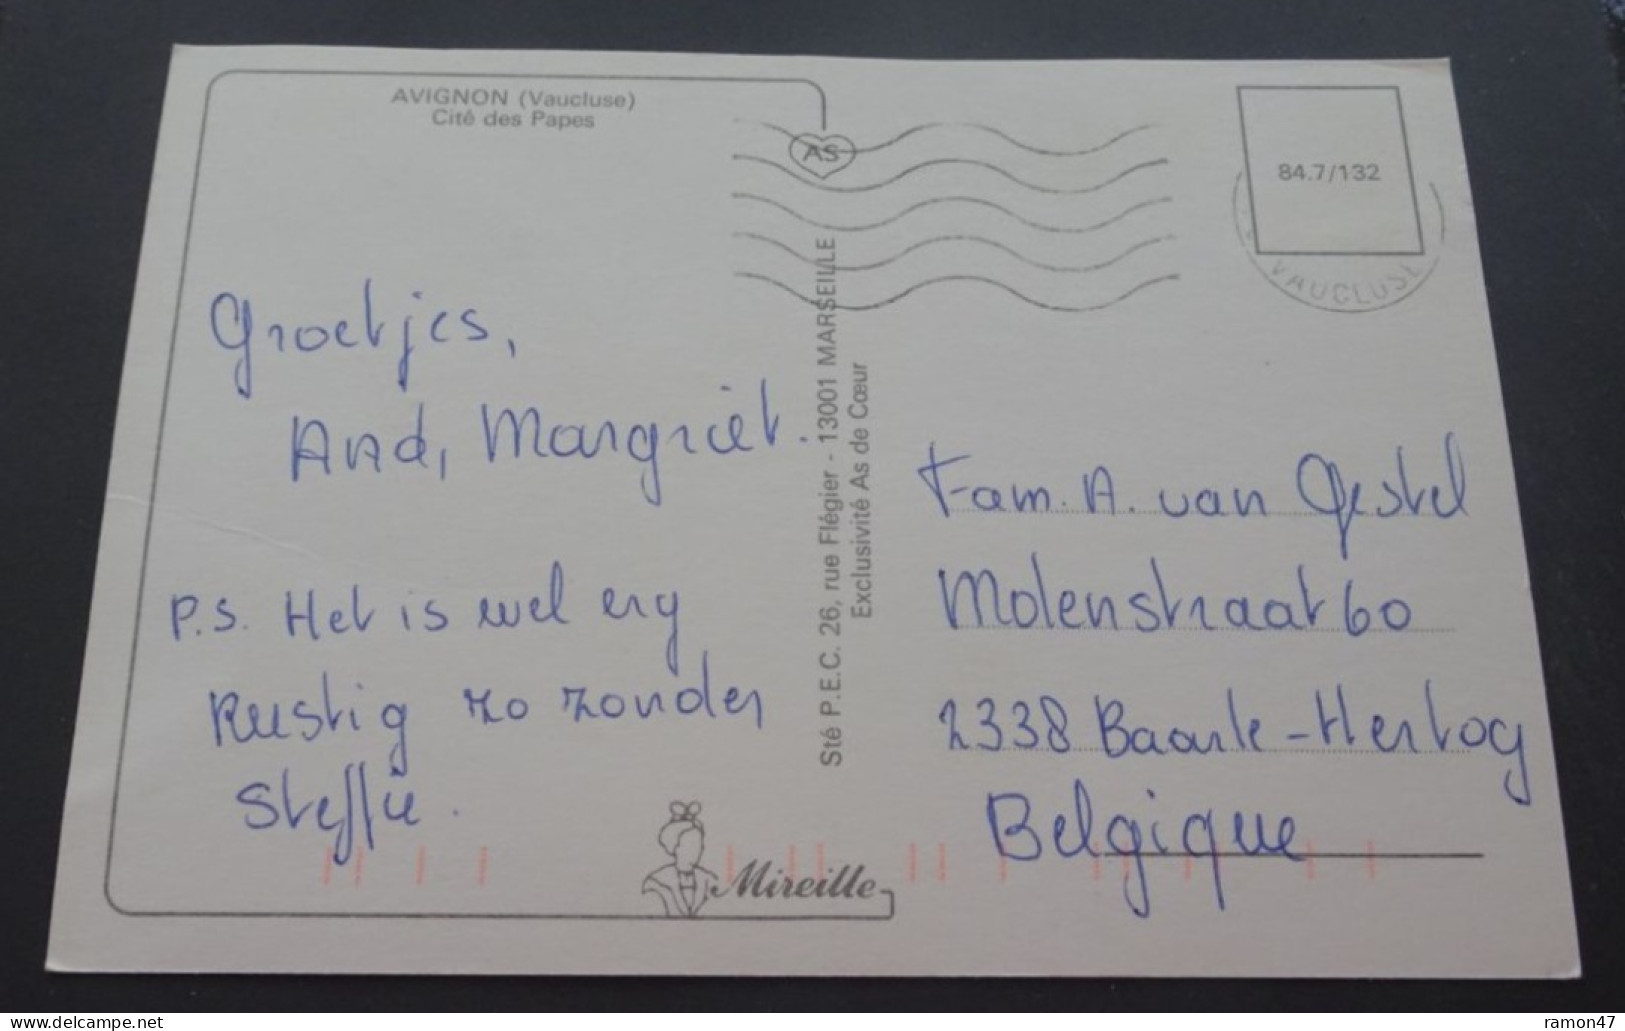 AVIGNON (Vaucluse)
Cité des Papes
AS
84.7/132
VAUCLUSE
Groetjes,
And, Margriet.
P.S. Het is wel erg
Rustig zo zonder
Steffie.
Sté P.E.C. 26, rue Flégier - 13001 MARSEILLE
Exclusivité As de Cœur
Fam. A. van Gestel
Molenstraat 60
2338 Baarle-Hertog
Belgique
Mireille
www.delcampe.net
ramon47